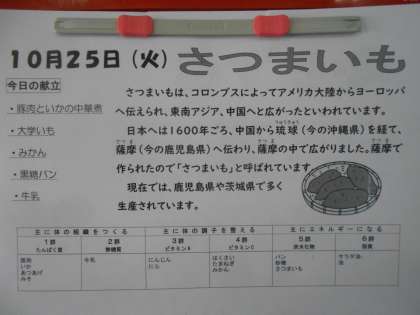 10月25日（火） さつまいも
今日の献立
・豚肉といかの中華煮
・大学いも
・みかん
・黒糖パン
・牛乳
さつまいもは、コロンブスによってアメリカ大陸からヨーロッパ
へ伝えられ、東南アジア、中国へと広がったといわれています。
日本へは1600年ごろ、中国から琉球（今の沖縄県）を経て、
薩摩（今の鹿児島県）へ伝わり、薩摩の中で広がりました。薩摩で
作られたので「さつまいも」と呼ばれています。
現在では、鹿児島県や茨城県で多く
生産されています。
主に体の組織をつくる 主に体の調子を整える 主にエネルギーになる
1群 2群 3群 4群 5群 6群
たんぱく質 無機質 ビタミンA ビタミンC 炭水化物 脂質
豚肉 牛乳 にんじん はくさい パン サラダ油
いか にら たまねぎ 砂糖 油
あつあげ みかん さつまいも
みそ